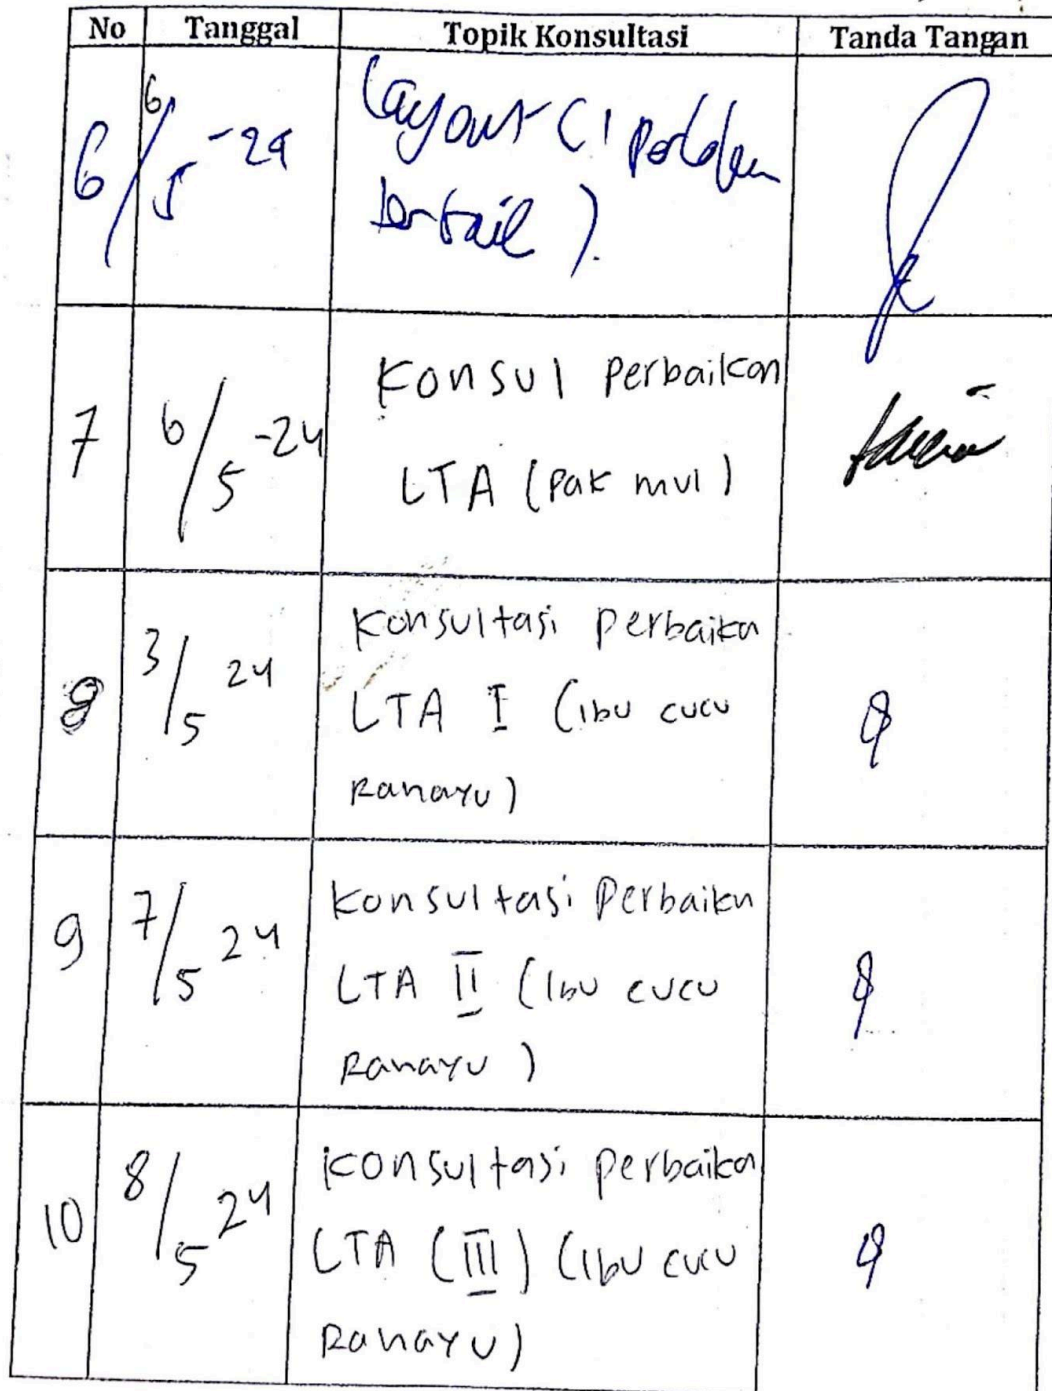 No Tanggal Topik Konsultasi Tanda Tangan
6 6/5 -24 Layout (
)
7 6/5 -24 Konsul Perbaikan
LTA (Pak mul)
8 3/5 24 Konsultasi Perbaikan
LTA I (Ibu cucu
Rahayu)
9 7/5 24 Konsultasi Perbaikn
LTA II (Ibu cucu
Rahayu)
10 8/5 24 Konsultasi Perbaikan
LTA (III) (Ibu cucu
Rahayu)